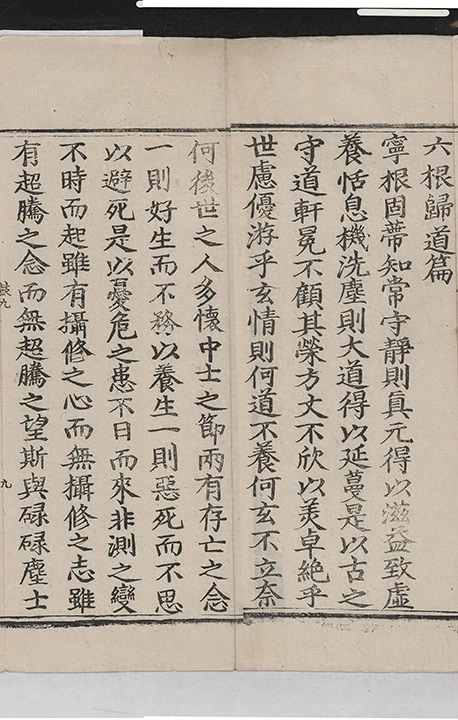 六根歸道篇
寧根固蔕知常守靜則真元得以滋益致虛
養恬息機洗塵則大道得以延蔓是以古之
守道軒冕不顧其榮方丈不欣以羙卓絶乎
世慮優游乎玄情則何道不養何玄不立奈
何後世之人多懷中士之節兩有存亡之念
一則好生而不務以養生一則惡死而不思
以避死是以憂危之患不日而來非測之變
不時而起雖有攝修之心而無攝修之志雖
有超騰之念而無超騰之望斯與碌碌塵士
九